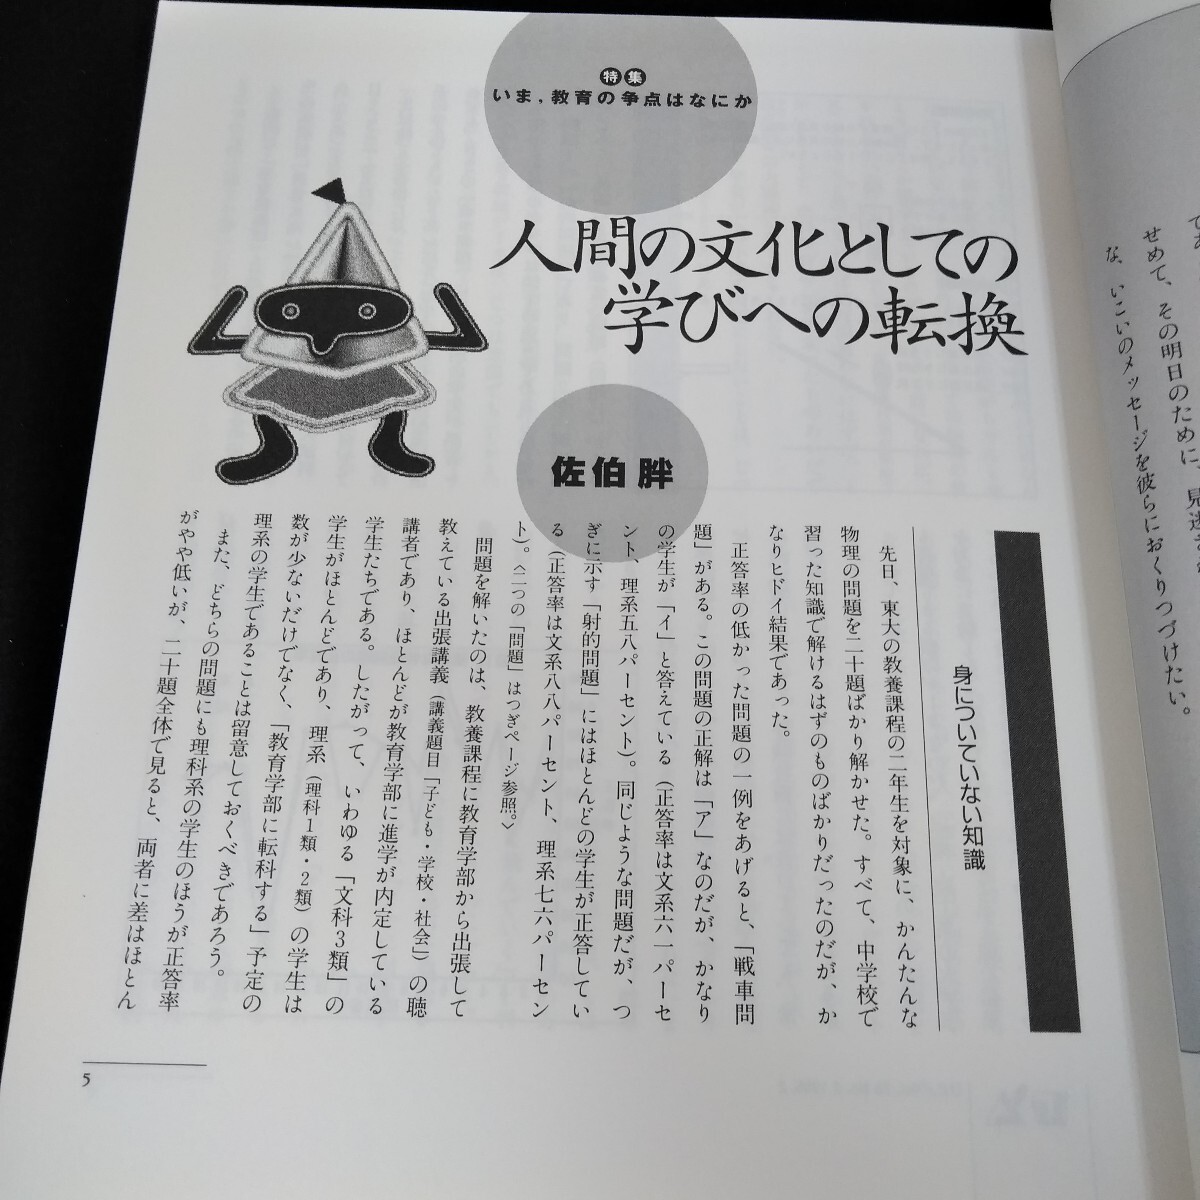 特集
いま，教育の争点はなにか
人間の文化としての
学びへの転換
佐伯 胖
身についていない知識
先日、東大の教養課程の二年生を対象に、かんたんな
物理の問題を二十題ばかり解かせた。すべて、中学校で
習った知識で解けるはずのものばかりだったのだが、か
なりヒドイ結果であった。
正答率の低かった問題の一例をあげると、「戦車問
題」がある。この問題の正解は「ア」なのだが、かなり
の学生が「イ」と答えている（正答率は文系六一パーセ
ント、理系五八パーセント）。同じような問題だが、つ
ぎに示す「射的問題」にはほとんどの学生が正答してい
る（正答率は文系八八パーセント、理系七六パーセン
ト）。〈二つの「問題」はつぎページ参照。〉
問題を解いたのは、教養課程に教育学部から出張して
教えている出張講義（講義題目「子ども・学校・社会」）の聴
講者であり、ほとんどが教育学部に進学が内定している
学生たちである。したがって、いわゆる「文科3類」の
学生がほとんどであり、理系（理科1類・2類）の学生は
数が少ないだけでなく、「教育学部に転科する」予定の
理系の学生であることは留意しておくべきであろう。
また、どちらの問題にも理科系の学生のほうが正答率
がやや低いが、二十題全体で見ると、両者に差はほとん
5
せめて、その明日のために、見
な、いこいのメッセージを彼らにおくりつづけたい。